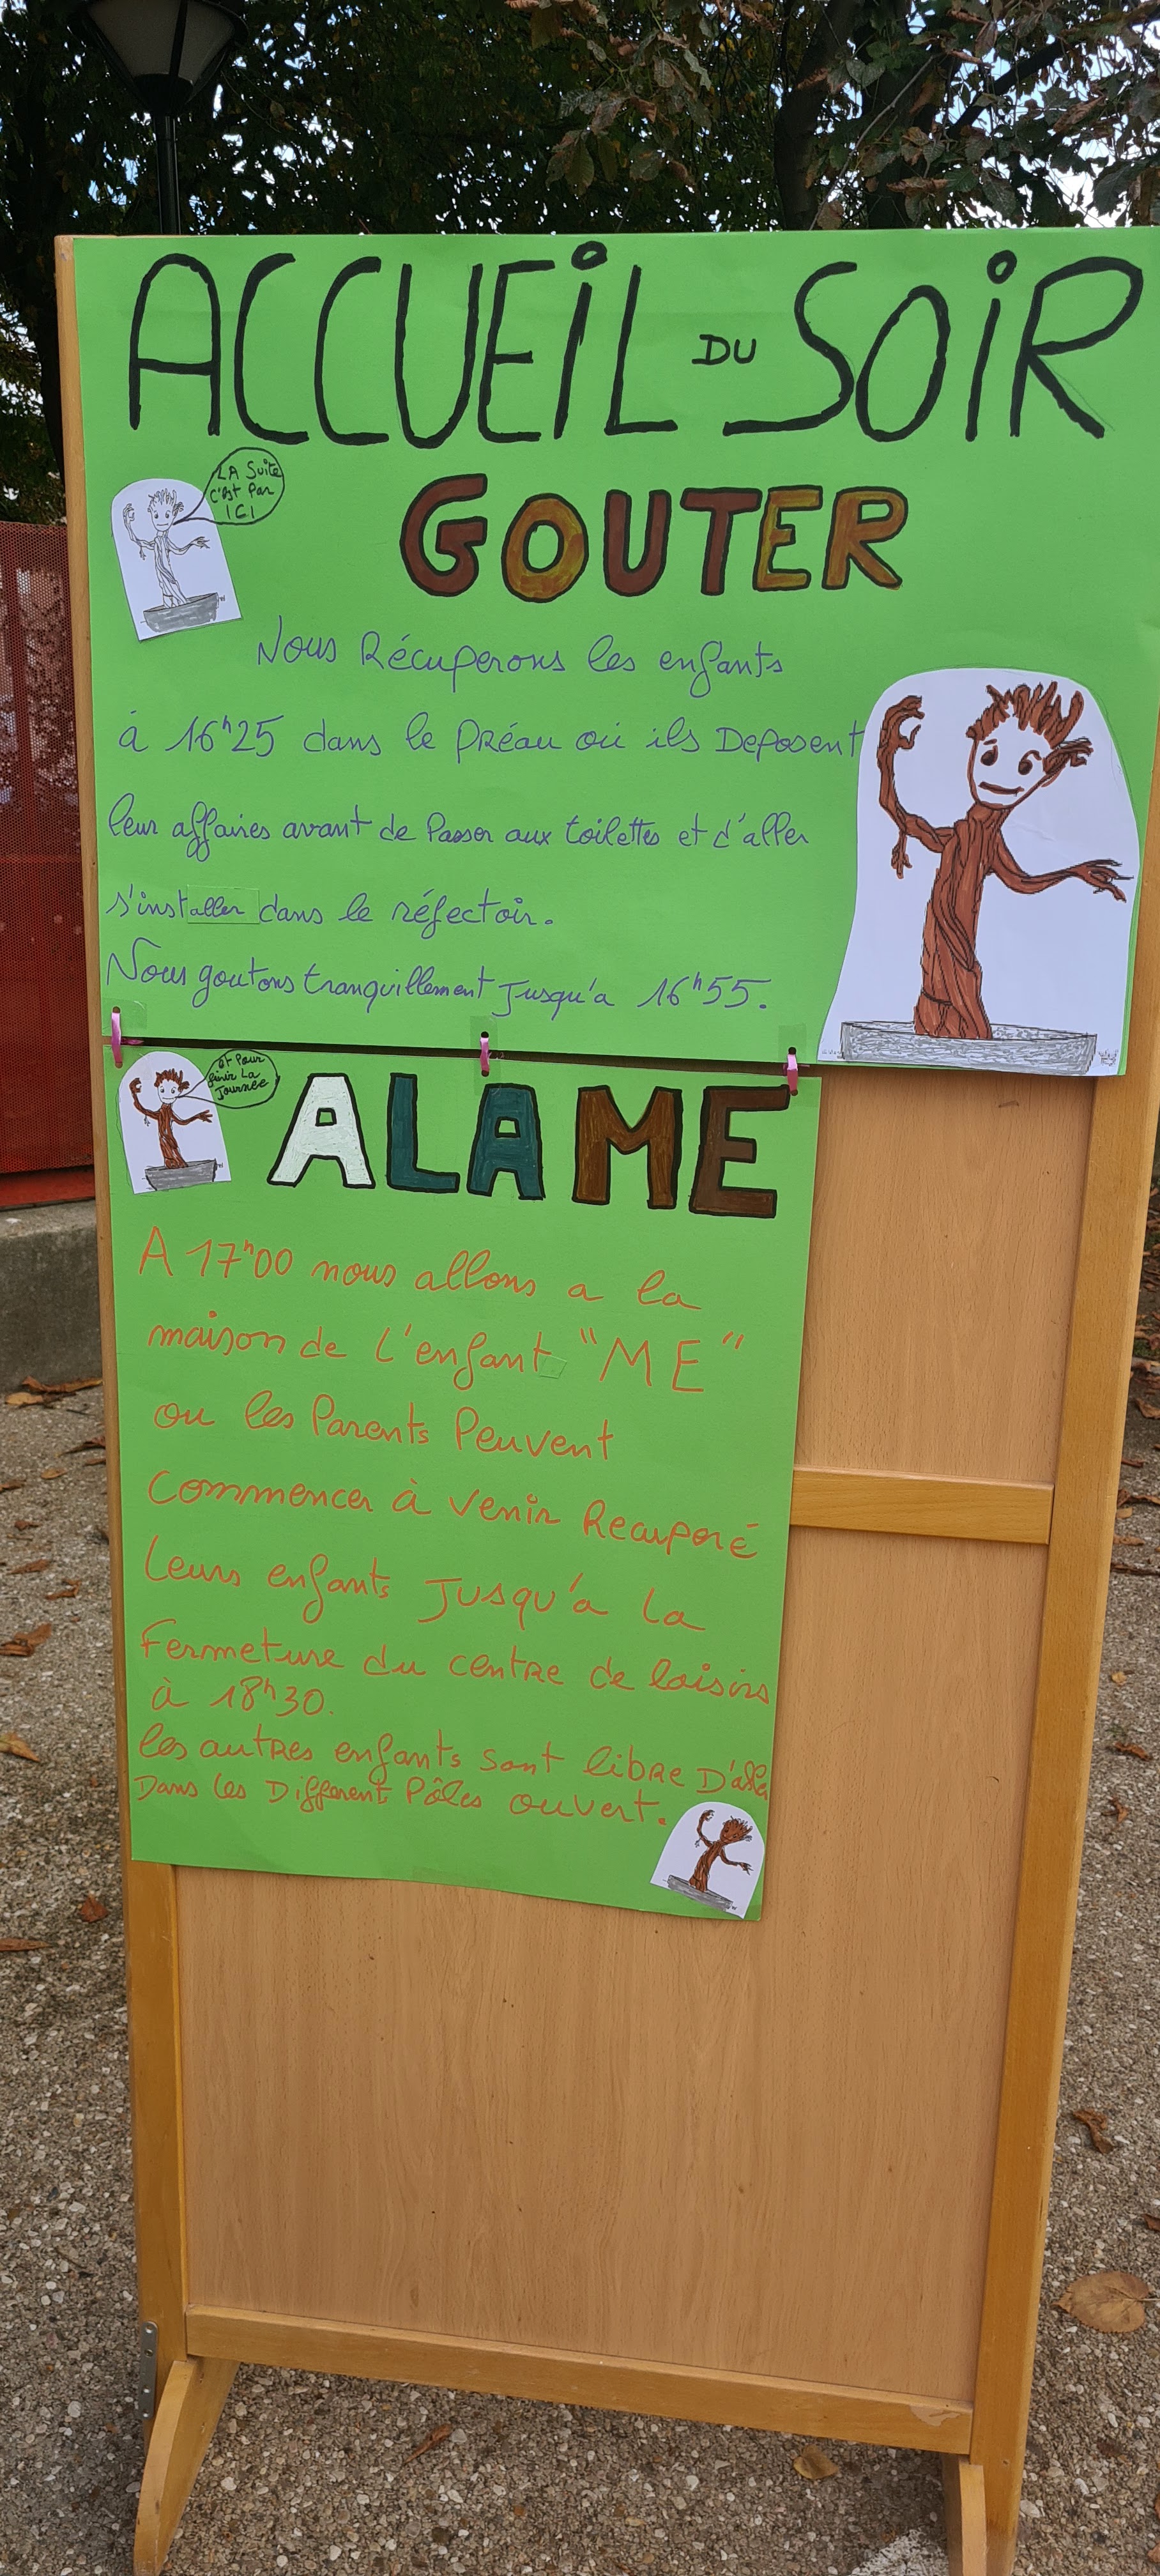 ACCUEIL DU SOIR
LA Suite
C'est Par
ICI
GOUTER
Nous Récuperons les enfants
à 16h25 dans le Préau où ils Deposent
leur affaires avant de Passer aux toilettes et d'aller
s'installer dans le réfectoir.
Nous goutons tranquillement Jusqu'a 16h55.
et Pour
finir La
Journée
A LA ME
A 17h00 nous allons a la
maison de l'enfant "ME"
ou les Parents Peuvent
Commencer à venir Recuperé
Leurs enfants Jusqu'a la
Fermeture du centre de loisirs
à 18h30.
les autres enfants sont libre D'aller
Dans les Different Pôles ouvert.